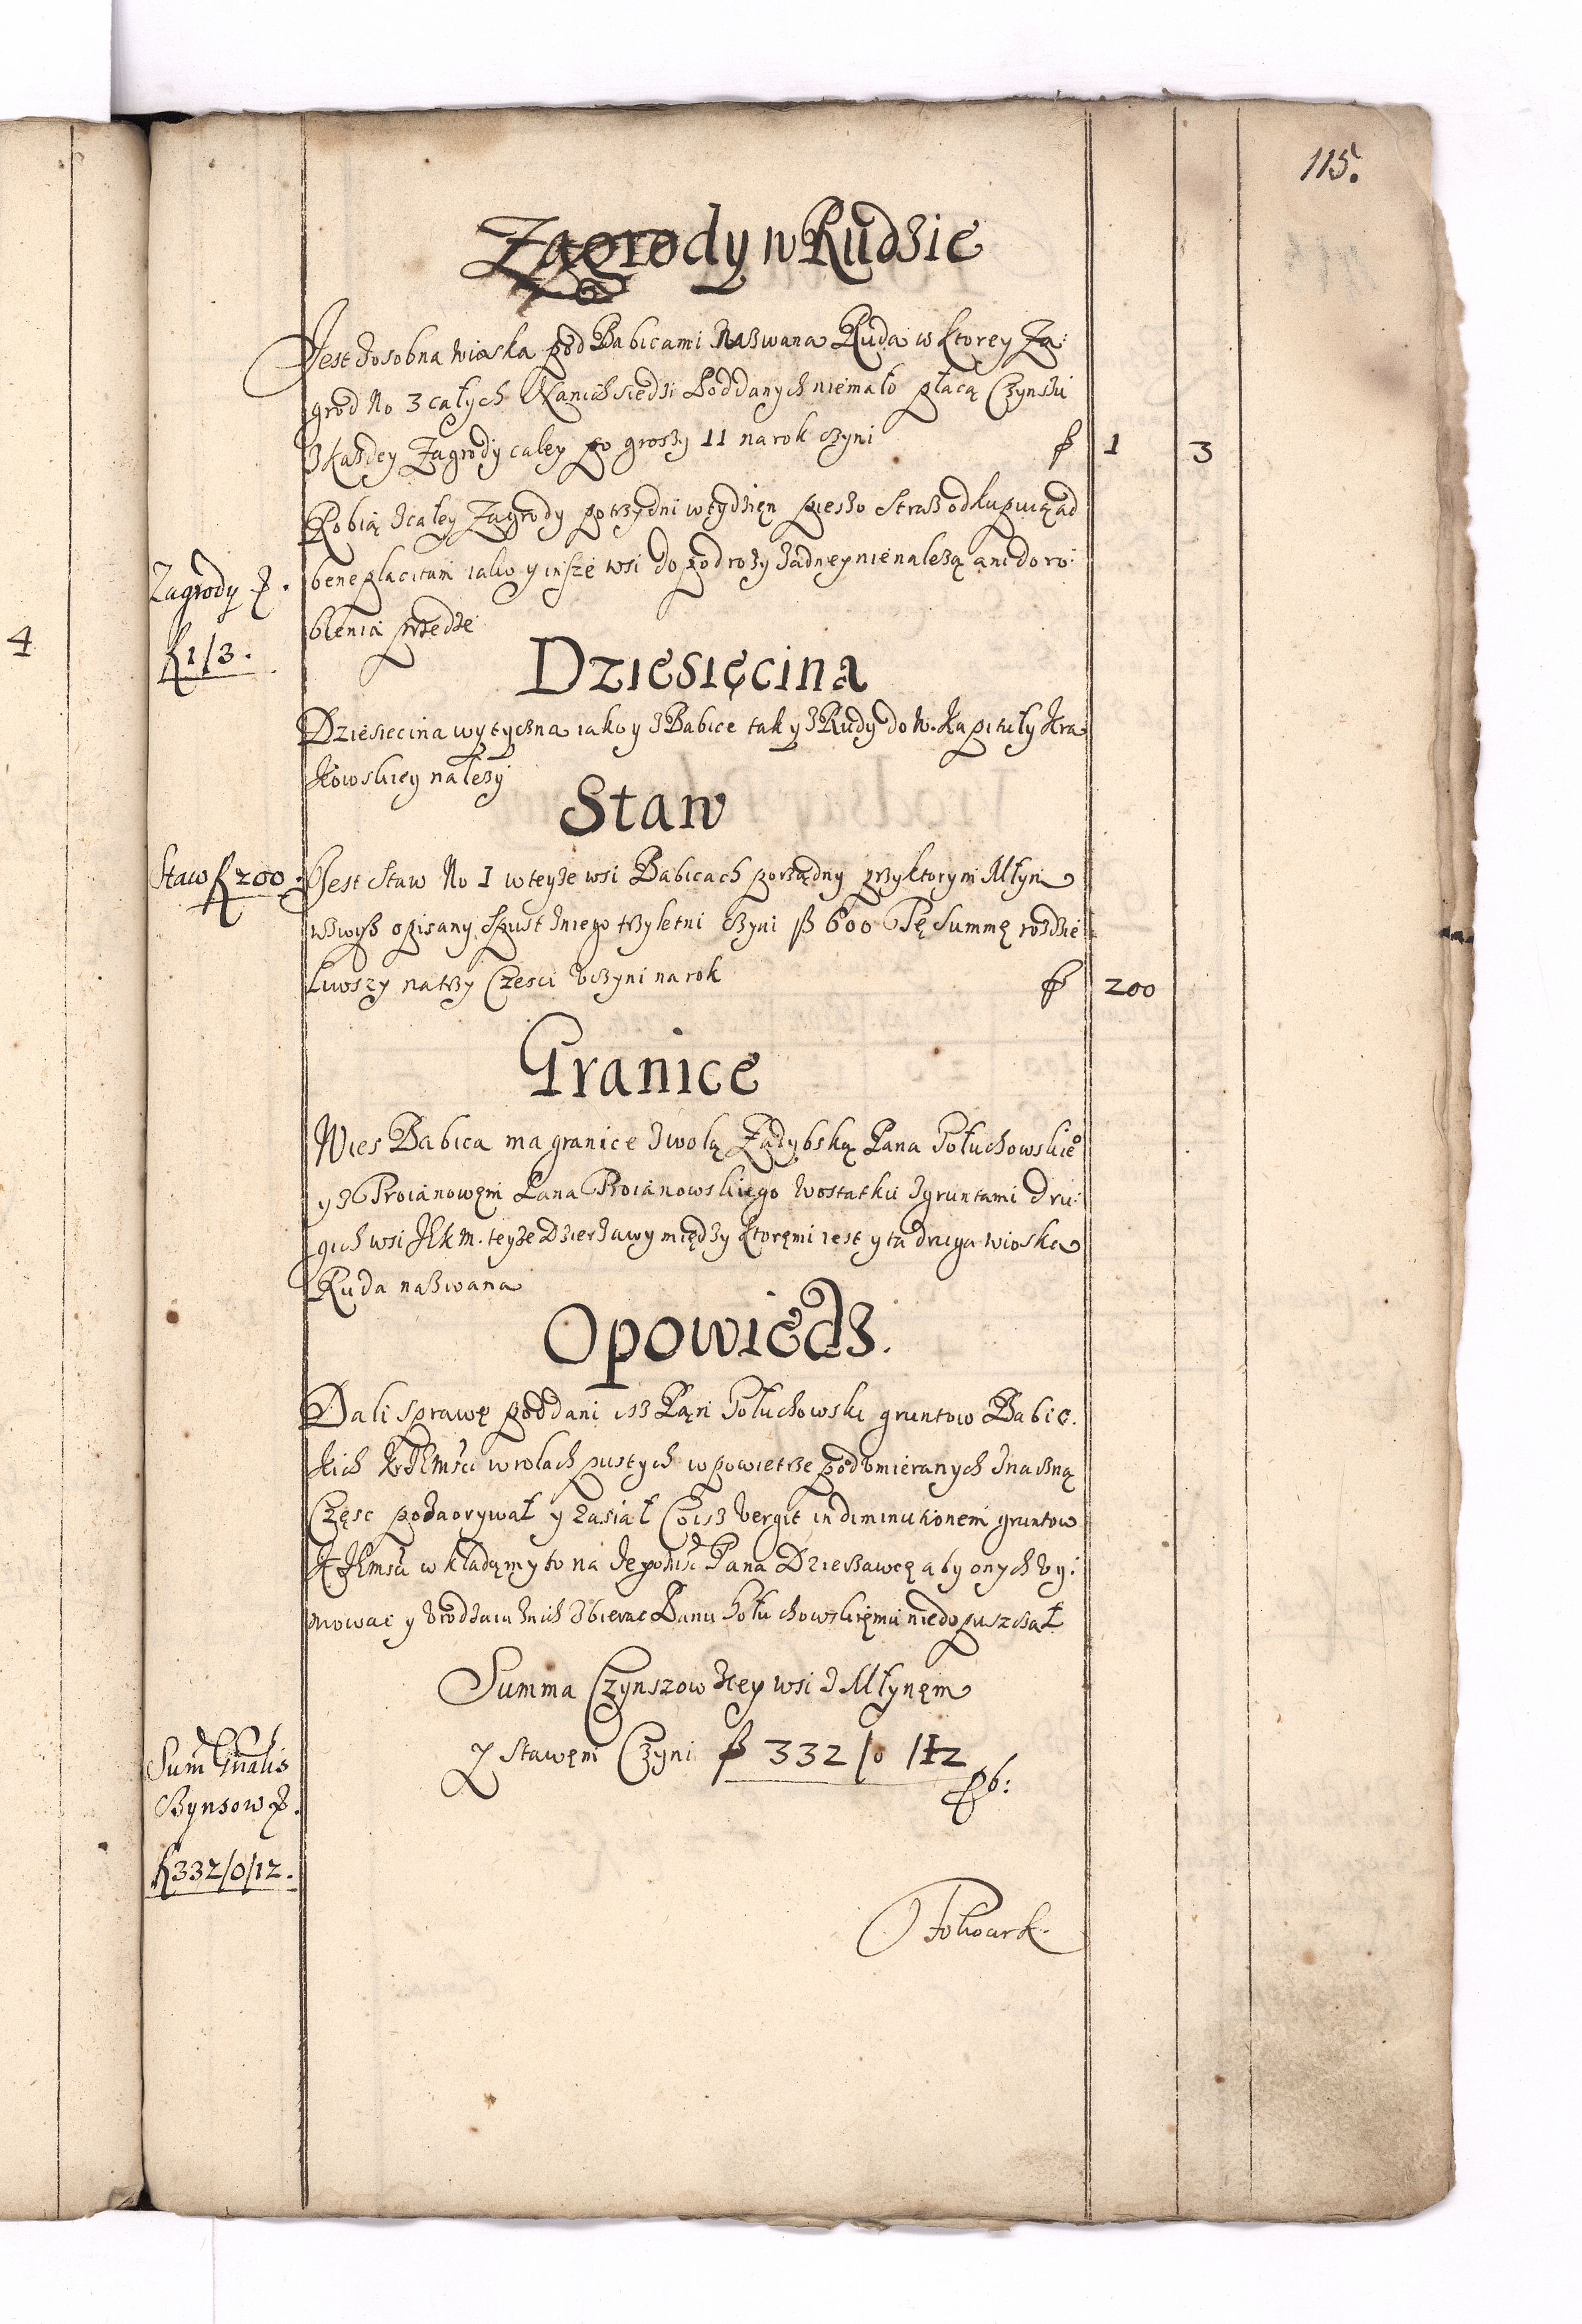 115.
Zagrody w Rudzie
Jest osobna wioska pod Babicami nazwana Ruda w ktorey Za:
grod No 3 całych Na nich siedzi Poddanych niemało płacą Czynszu
z kazdey Zagrody całey po groszy 11 na rok czyni f 1 3
Robią z całey Zagrody po trzy dni w tydzien pieszo Straz odkupuią ad
bene placitum iako y insze wsi do podrozy zadney nie nalezą ani do ro:
blenia przedze
Zagrody f.
f 1/3.
4
Dziesięcina
Dziesiecina wytyczna iako y z Babice tak y z Rudy do W. Kapituły Kra
kowskiey nalezy
Staw
Staw f 200.
Jest Staw No 1 w teyze wsi Babicach porządny przy ktorym Młyn
wzwysz opisany Spust z niego trzyletni czyni f 600 Tę Summę rozdzie
liwszy na trzy Czesci uczyni na rok f 200
Granice
Wies Babica ma granice z wolą Zadybską Pana Gołuchowskie°
y z Troianowem Pana Troianowskiego w ostatku z gruntami dru:
gich wsi JKM. teyze Dzierzawy między ktoremi iest y ta druga wioska
Ruda nazwana
Opowiedz.
Dali sprawę poddani isz Pan Gołuchowski gruntow Babic.
kich w rolach pustych w powietrze podumieranych znaczną
Częsc y zasiał Co isz vergit in diminutionem gruntow
wkładamy to na Pana Dzierzawcę aby onych uy:
mowac y urodzaiu z nich zbierac Panu Gołuchowskiemu niedopuszczał
Summa Czynszow z tey wsi z Młynem
Z Stawem Czyni f 332/0/12
Sum Gnalis
Czynsow f.
f 332/0/12.
Folwark.